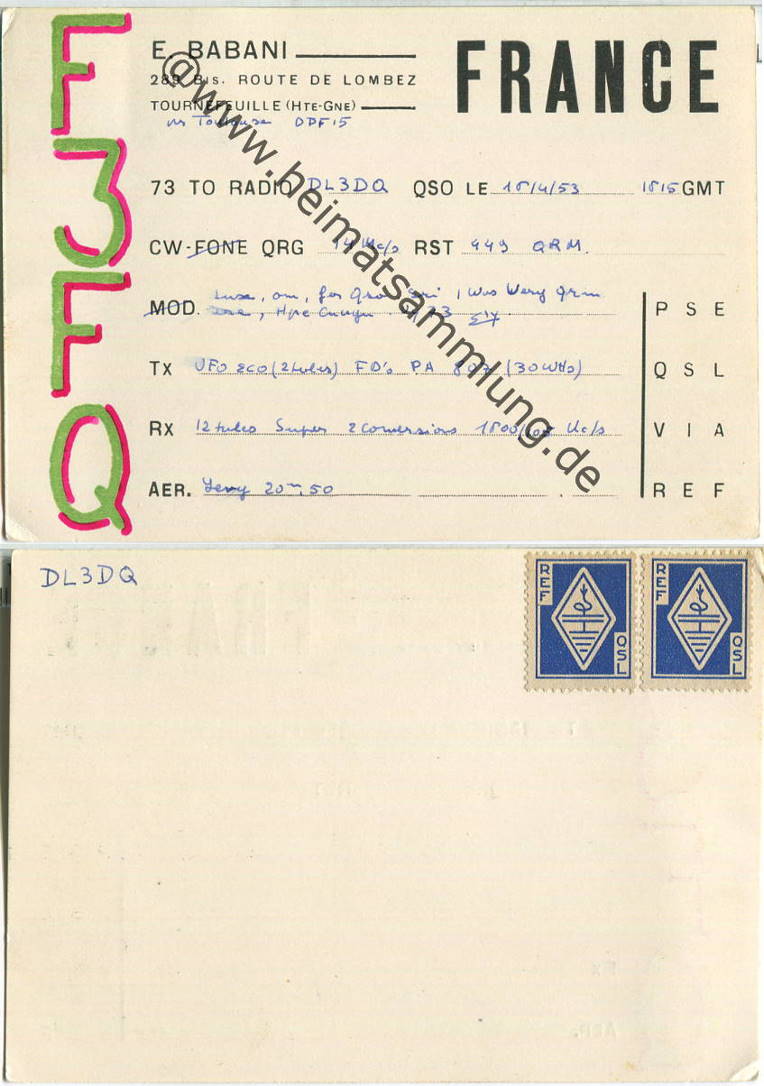 F3FQ
E. BABANI
FRANCE
289 Bis. ROUTE DE LOMBEZ
TOURNEFEUILLE (HTE-GNE)
Toulouse DPF15
73 TO RADIO DL3DQ QSO LE 18/4/53 1815 GMT
CW-FONE QRG 14 Mc/s RST 449 QRM.
om, for Qso I Was Very Qrm
MOD. 73
PSE
TX VFO eco (2 tubes) FD's PA 807 (30 watts)
QSL
RX 12 tubes Super 2 conversions Kc/s
VIA
AER. Levy 20m,50
REF
@www.heimatsammlung.de
DL3DQ
REF QSL
REF QSL